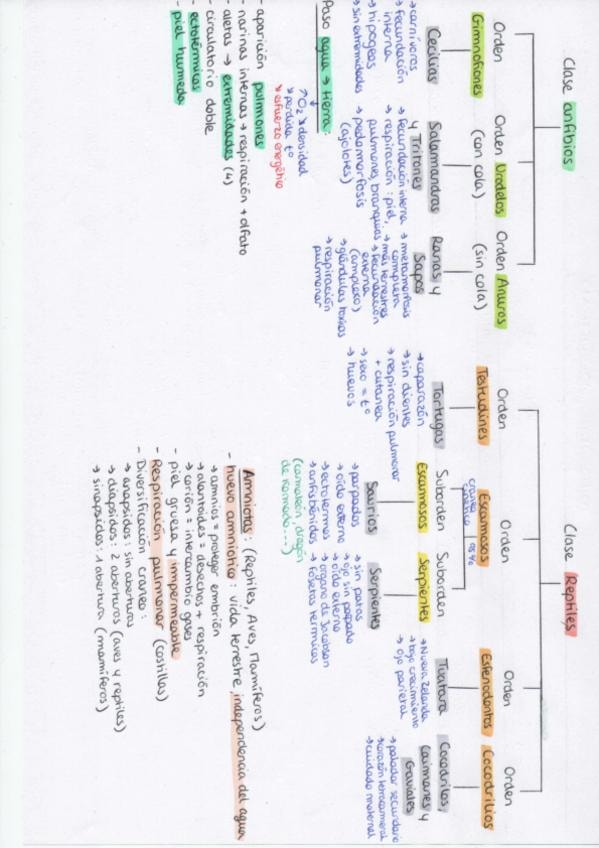 Clase anfibios
Orden
Gimnofiones
Cecilias
→ carnívoras
→ fecundación
interna
→ hipogeos
→ sin extremidades
Orden Urodelos
(con cola)
Salamandras
y Tritones
→ fecundación interna
→ respiración: piel,
pulmones, branquias
→ pedomorfosis
(ajolotes)
Orden Anuros
(sin cola)
Ranas y
Sapos
→ metamorfosis
completa
→ más terrestres
→ fecundación
externa
(amplexo)
→ glándulas toxicas
→ respiración
pulmonar
Paso agua → tierra:
↑O₂ ↘ densidad
↘ perdida tº
↘ esfuerzo energético
- aparición pulmones
- narinas internas → respiración + olfato
- aletas → extremidades (4)
- circulatorio doble
- ectotérmicos
- piel humeda
Clase Reptiles
Orden
Testudines
Tortugas
→ caparazón
→ sin dientes
→ respiración pulmonar
+ cutanea
→ sexo = tº
→ huevos
Orden
Escamosos
craneo
95%
Suborden
Escamosos
Saurios
→ parpados
→ oído externo
→ ectotermos
→ anfisbénidos
(camaleón, dragón
de komodo...)
Suborden
Serpientes
Serpientes
→ sin patas
→ ojo sin parpado
→ oído externo
→ organo de Jacobson
→ fosetas termicas
Orden
Esfenodontos
Tuatara
→ Nueva Zelanda
→ bajo crecimiento
→ ojo parietal
Orden
Cocodrilios
Cocodrilos,
Caimanes y
Gaviales
→ paladar secundario
→ corazón tetracameral
→ cuidado maternal
Amniotas: (Reptiles, Aves, Mamíferos)
- huevo amniotico: vida terrestre, independencia del agua
→ amnios = proteger embrión
→ alantoides = desechos + respiración
→ corión = intercambio gases
- piel grueza y impermeable
- Respiración pulmonar (costillas)
- Diversificación craneo:
→ anapsidos: sin aberturas
→ diapsidos: 2 aberturas (aves y reptiles)
→ sinapsidos: 1 abertura (mamíferos)